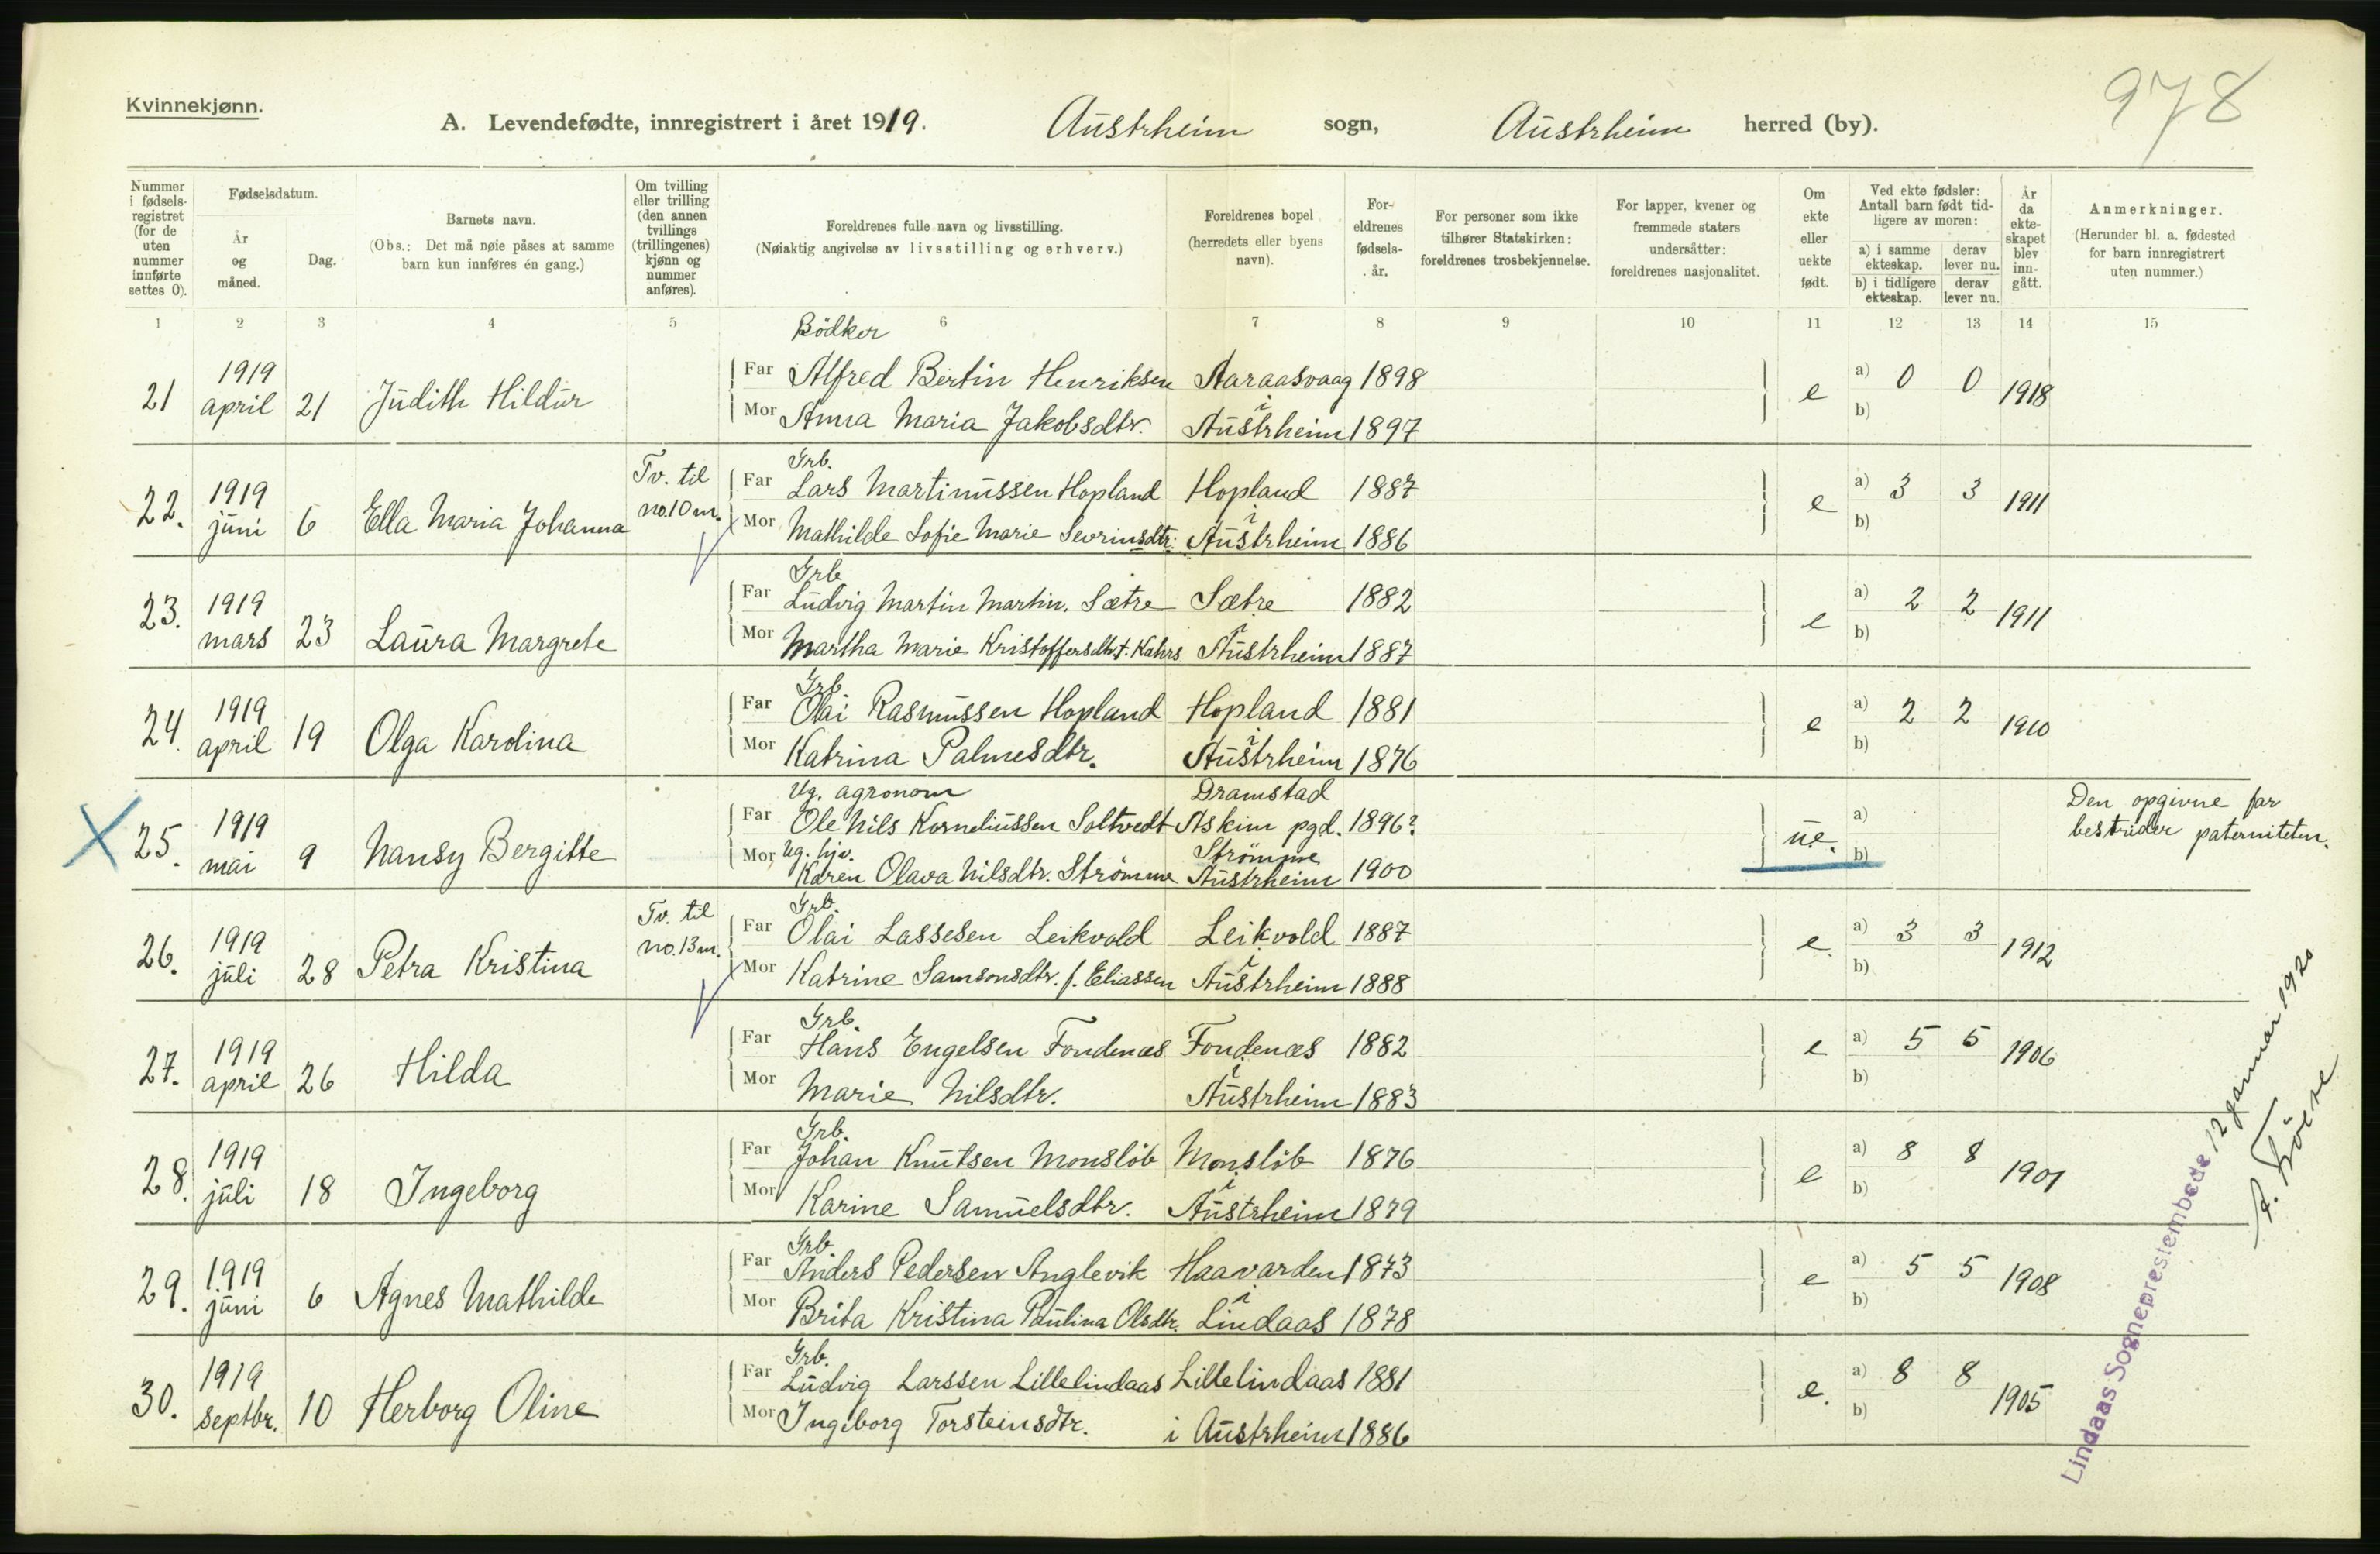 Kvinnekjønn.
978
A. Levendefødte, innregistrert i året 1919. Austrheim sogn, Austrheim herred (by).
Nummer i fødselsregistret (for de uten nummer innførte settes 0).
Fødselsdatum.
År og måned.
Dag.
Barnets navn.
(Obs.: Det må nøie påses at samme barn kun innføres én gang.)
Om tvilling eller trilling (den annen tvillings (trillingenes) kjønn og nummer anføres).
Foreldrenes fulle navn og livsstilling.
(Nøiaktig angivelse av livsstilling og erhverv.)
Foreldrenes bopel (herredets eller byens navn).
Foreldrenes fødselsår.
For personer som ikke tilhører Statskirken: foreldrenes trosbekjennelse.
For lapper, kvener og fremmede staters undersåtter: foreldrenes nasjonalitet.
Om ekte eller uekte født.
Ved ekte fødsler: Antall barn født tidligere av moren:
a) i samme ekteskap. derav lever nu.
b) i tidligere ekteskap. derav lever nu.
År da ekteskapet blev inngått.
Anmerkninger.
(Herunder bl. a. fødested for barn innregistrert uten nummer.)
1 2 3 4 5 6 7 8 9 10 11 12 13 14 15
Bödker
21 1919 april 21 Judith Hildur
Far Alfred Bertin Henriksen Aaraasvaag 1898 e a) 0 0 1918
Mor Anna Maria Jakobsdtr. i Austrheim 1897 b)
Grb.
22. 1919 juni 6 Ella Maria Johanna Tv. til no. 10 m.
Far Lars Martinussen Hopland Hopland 1887 e a) 3 3 1911
Mor Mathilde Sofie Marie Sevrinsdtr. i Austrheim 1886 b)
Grb
23. 1919 mars 23 Laura Margrete
Far Ludvig Martin Martin. Sætre Sætre 1882 e a) 2 2 1911
Mor Martha Marie Kristoffersdtr. f. Kahrs i Austrheim 1887 b)
Grb
24. 1919 april 19 Olga Karolina
Far Olai Rasmussen Hopland Hopland 1881 e a) 2 2 1910
Mor Katrina Palmesdtr. i Austrheim 1876 b)
Ug. agronom Dramstad
25. 1919 mai 9 Nansy Bergitte
Far Ole Nils Korneliussen Soltvedt Askim pgd. 1896? ue. a) Den opgivne far bestrider paterniteten.
Ug. hjv. Strömme
Mor Karen Olava Nilsdtr. Strömme Austrheim 1900 b)
Grb.
26. 1919 juli 28 Petra Kristina Tv. til no. 13 m.
Far Olai Lassesen Leikvold Leikvold 1887 e. a) 3 3 1912
Mor Katrine Samsonsdtr. f. Eliassen i Austrheim 1888 b)
Grb.
27. 1919 april 26 Hilda
Far Hans Engelsen Fondenæs Fondenæs 1882 e a) 5 5 1906
Mor Marie Nilsdtr. i Austrheim 1883 b)
Grb.
28. 1919 juli 18 Ingeborg
Far Johan Knutsen Monslöb Monslöb 1876 e a) 8 8 1901
Mor Karine Samuelsdtr. i Austrheim 1879 b)
Grb.
29. 1919 juni 6 Agnes Mathilde
Far Anders Pedersen Anglevik Haavarden 1873 e a) 5 5 1908
Mor Brita Kristina Paulina Olsdtr. i Lindaas 1878 b)
Grb.
30. 1919 septbr. 10 Herborg Oline
Far Ludvig Larssen Lillelindaas Lillelindaas 1881 e. a) 8 8 1905
Mor Ingeborg Torsteinsdtr. i Austrheim 1886 b)
Lindaas Sogneprestembede, 12 januar 1920